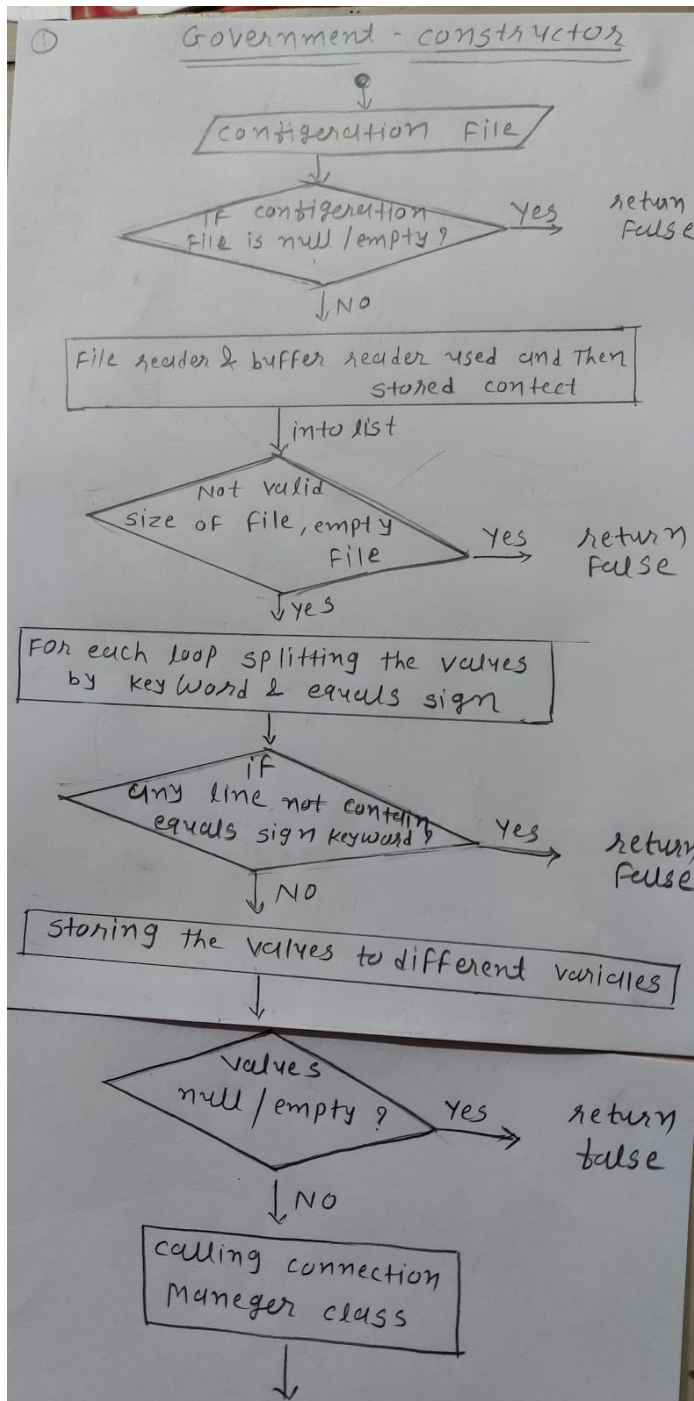 ①
Government - constructor
configeration File
if configeration
File is null / empty ?
Yes
return
False
NO
File reader & buffer reader used and Then
stored contect
into list
Not valid
size of file, empty
File
Yes
return
False
Yes
For each loop splitting the values
by key word & equals sign
if
any line not contain
equals sign keyword ?
Yes
return
False
NO
storing the values to different variales
values
null / empty ?
Yes
return
false
NO
calling connection
Maneger class